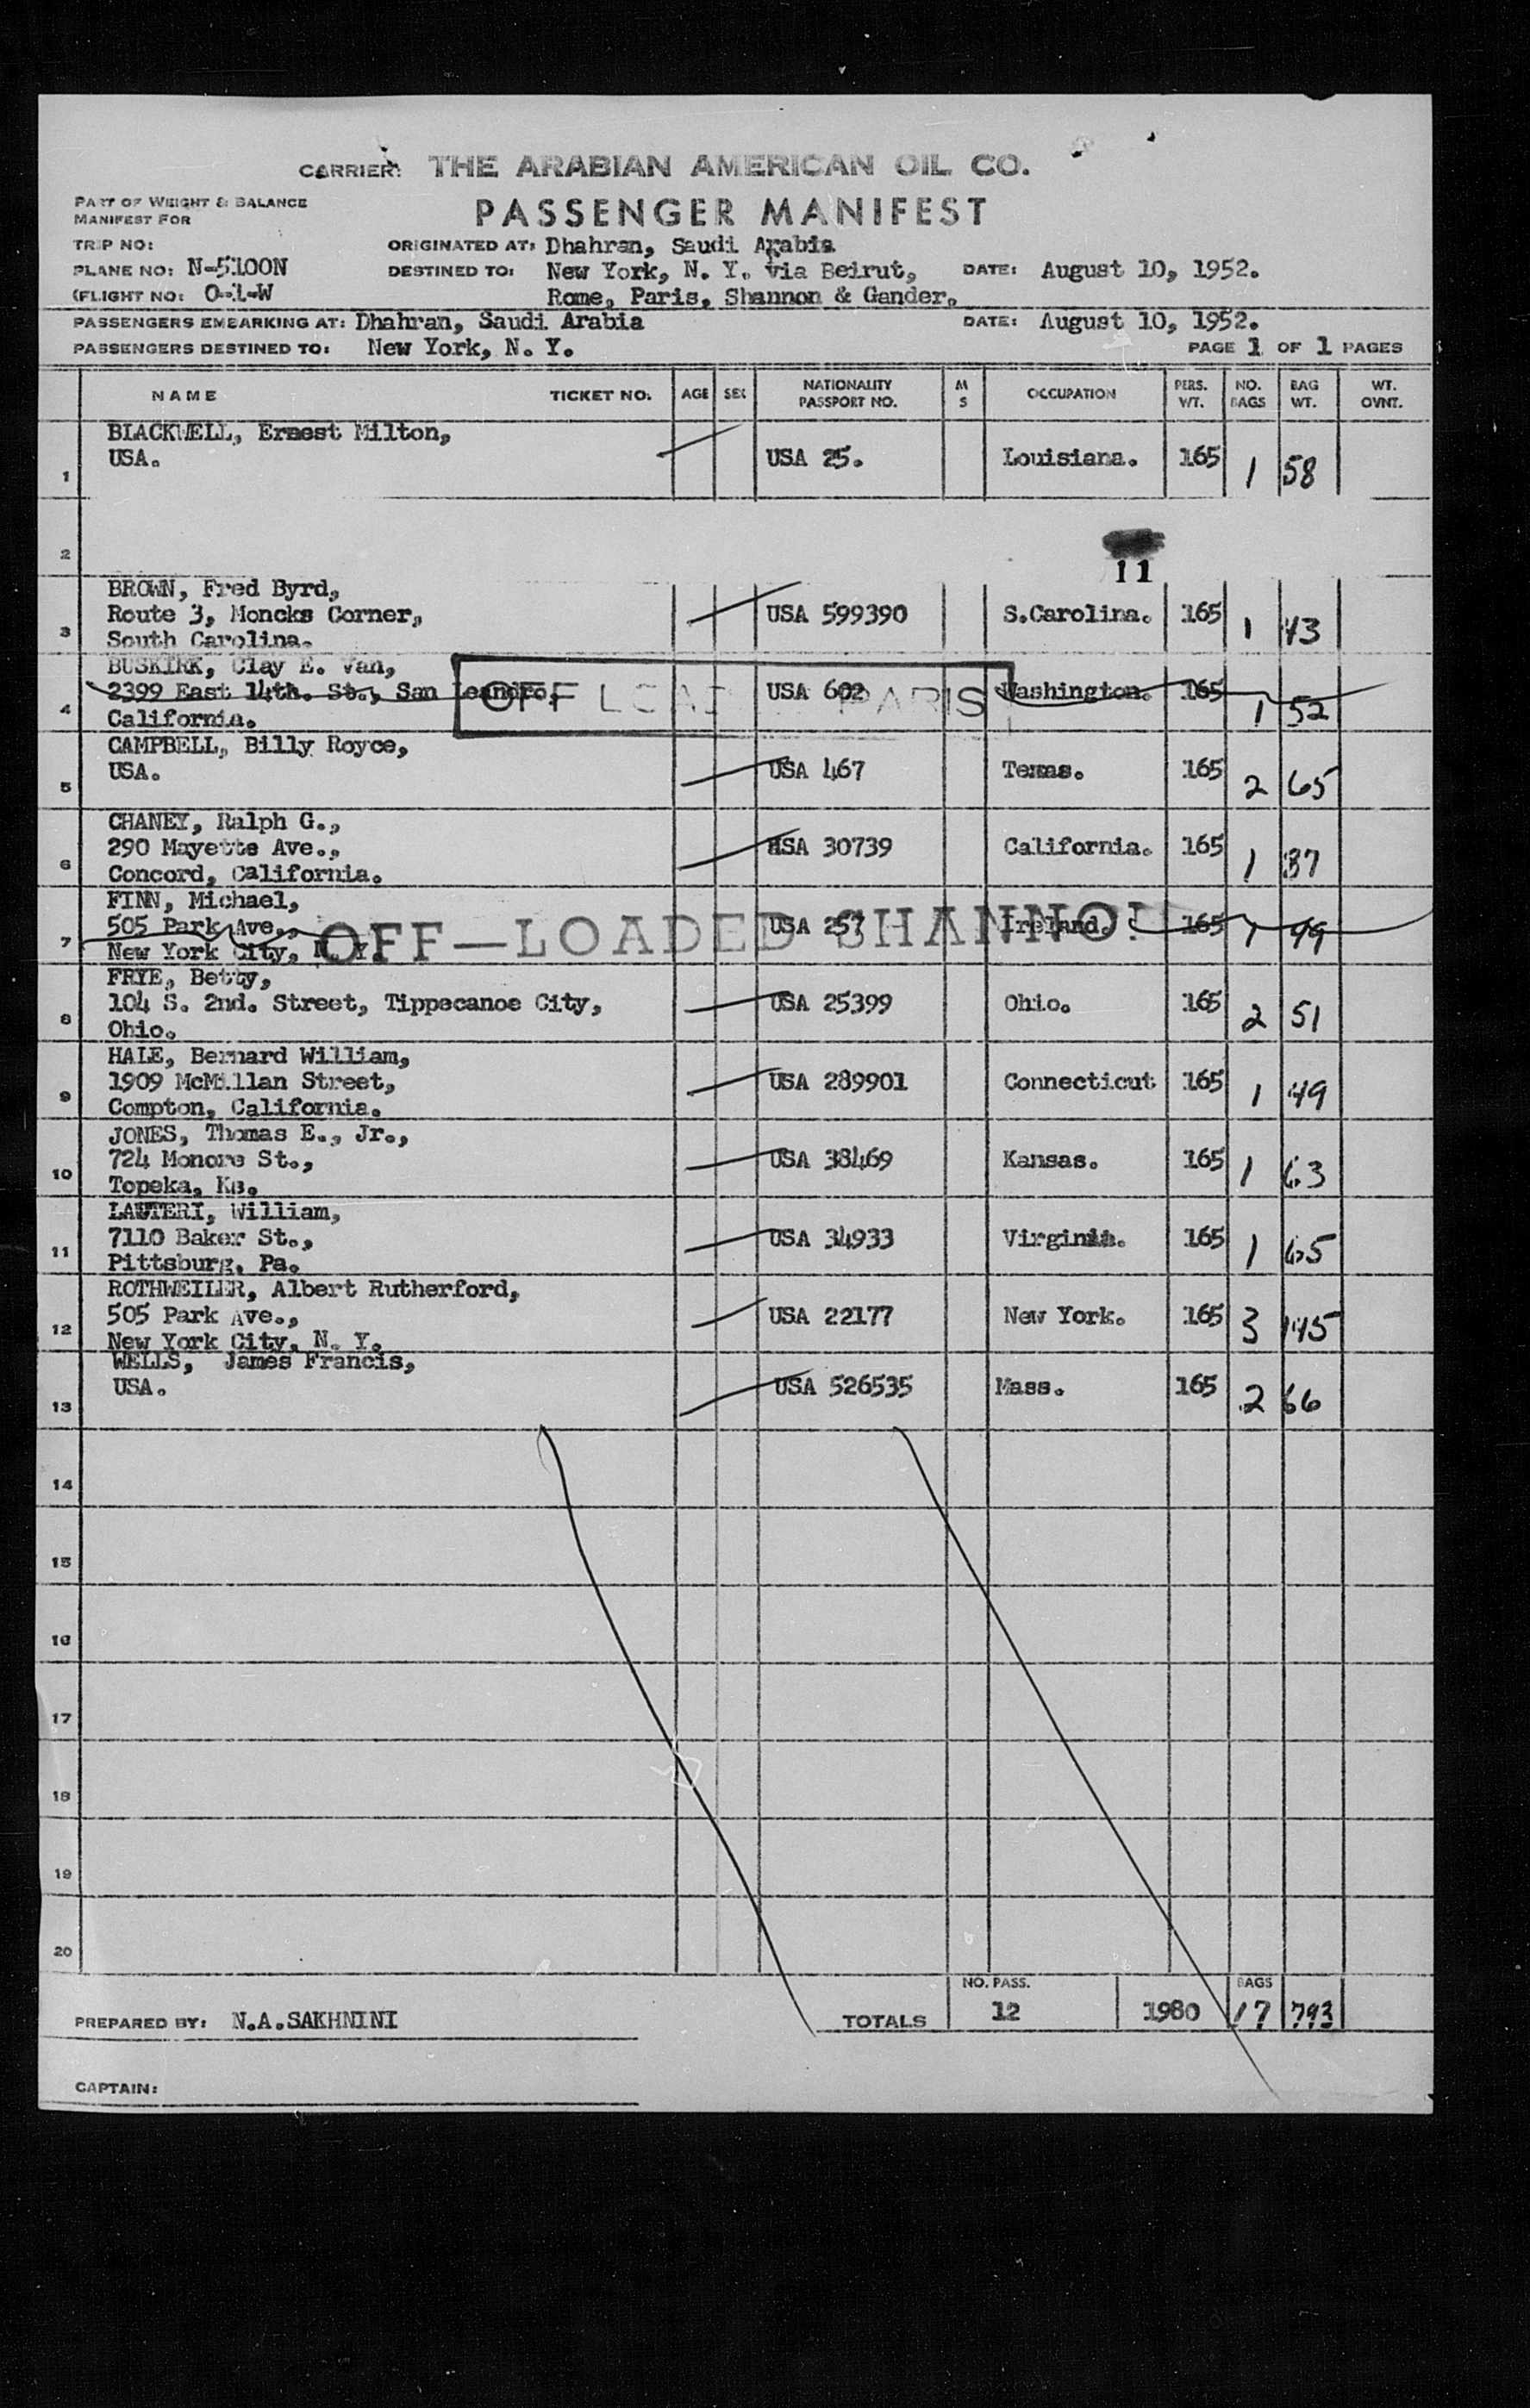 CARRIER: THE ARABIAN AMERICAN OIL CO.
PART OF WEIGHT & BALANCE
MANIFEST FOR
PASSENGER MANIFEST
TRIP NO:
ORIGINATED AT: Dhahran, Saudi Arabia
PLANE NO: N-5100N
DESTINED TO: New York, N. Y. via Beirut, DATE: August 10, 1952.
(FLIGHT NO: O-1-W
Rome, Paris, Shannon & Gander.
PASSENGERS EMBARKING AT: Dhahran, Saudi Arabia DATE: August 10, 1952.
PASSENGERS DESTINED TO: New York, N. Y. PAGE 1 OF 1 PAGES
NAME TICKET NO. AGE SEX NATIONALITY PASSPORT NO. M S OCCUPATION PERS. WT. NO. BAGS BAG WT. WT. OVNT.
BLACKWELL, Ernest Milton,
1 USA. USA 25. Louisiana. 165 1 58
2
11
BROWN, Fred Byrd,
3 Route 3, Moncks Corner, USA 599390 S.Carolina. 165 1 43
South Carolina.
BUSKIRK, Clay E. Van,
4 2399 East 14th. St., San Leandro, USA 602 Washington. 165 1 52
California.
OFF LOAD PARIS
CAMPBELL, Billy Royce,
5 USA. USA 467 Texas. 165 2 65
CHANEY, Ralph G.,
6 290 Mayette Ave., USA 30739 California. 165 1 37
Concord, California.
FINN, Michael,
7 505 Park Ave., USA 257 Ireland. 165 1 49
New York City, N. Y.
OFF-LOADED SHANNON
FRYE, Betty,
8 104 S. 2nd. Street, Tippecanoe City, USA 25399 Ohio. 165 2 51
Ohio.
HALE, Bernard William,
9 1909 McMillan Street, USA 289901 Connecticut 165 1 49
Compton, California.
JONES, Thomas E., Jr.,
10 724 Monore St., USA 38469 Kansas. 165 1 63
Topeka, Ks.
LAUTERI, William,
11 7110 Baker St., USA 34933 Virginia. 165 1 65
Pittsburg, Pa.
ROTHWEILER, Albert Rutherford,
12 505 Park Ave., USA 22177 New York. 165 3 145
New York City, N. Y.
WELLS, James Francis,
13 USA. USA 526535 Mass. 165 2 66
14
15
16
17
18
19
20
NO. PASS. BAGS
PREPARED BY: N.A.SAKHNINI TOTALS 12 1980 17 793
CAPTAIN: